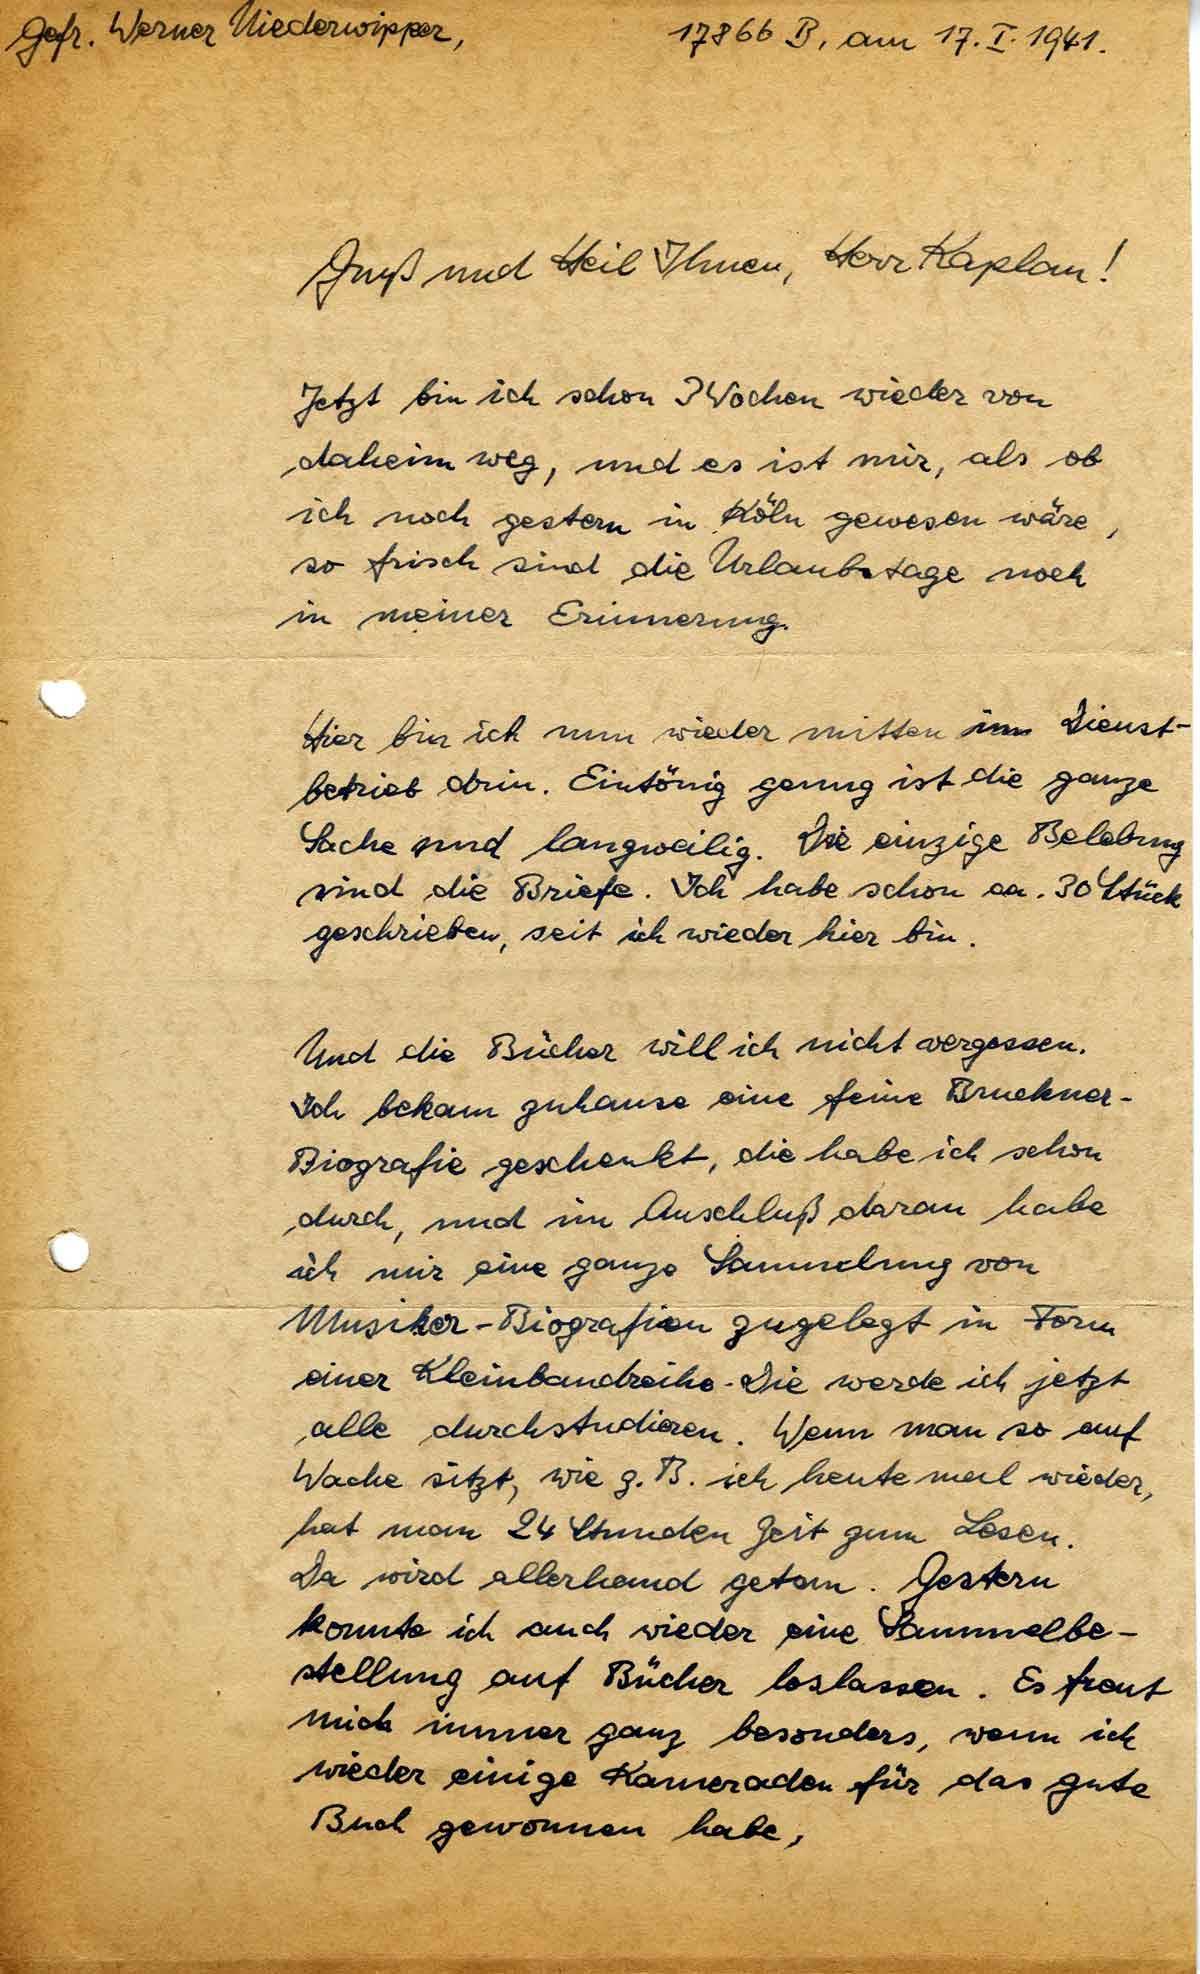 Gefr. Werner Niederwipper,
17866 B, am 17. I. 1941.
Gruß und Heil Ihnen, Herr Kaplan!
Jetzt bin ich schon 3 Wochen wieder von
daheim weg, und es ist mir, als ob
ich noch gestern in Köln gewesen wäre,
so frisch sind die Urlaubstage noch
in meiner Erinnerung.
Hier bin ich nun wieder mitten im Dienst-
betrieb drin. Eintönig genug ist die ganze
Sache und langweilig. Die einzige Belebung
sind die Briefe. Ich habe schon ca. 30 Stück
geschrieben, seit ich wieder hier bin.
Und die Bücher will ich nicht vergessen.
Ich bekam zuhause eine feine Bruckner-
Biografie geschenkt, die habe ich schon
durch, und im Anschluß daran habe
ich mir eine ganze Sammlung von
Musiker-Biografien zugelegt in Form
einer Kleinbandreihe. Die werde ich jetzt
alle durchstudieren. Wenn man so auf
Wache sitzt, wie z. B. ich heute mal wieder,
hat man 24 Stunden Zeit zum Lesen.
Da wird allerhand getan. Gestern
konnte ich auch wieder eine Sammelbe-
stellung auf Bücher loslassen. Es freut
mich immer ganz besonders, wenn ich
wieder einige Kameraden für das gute
Buch gewonnen habe,